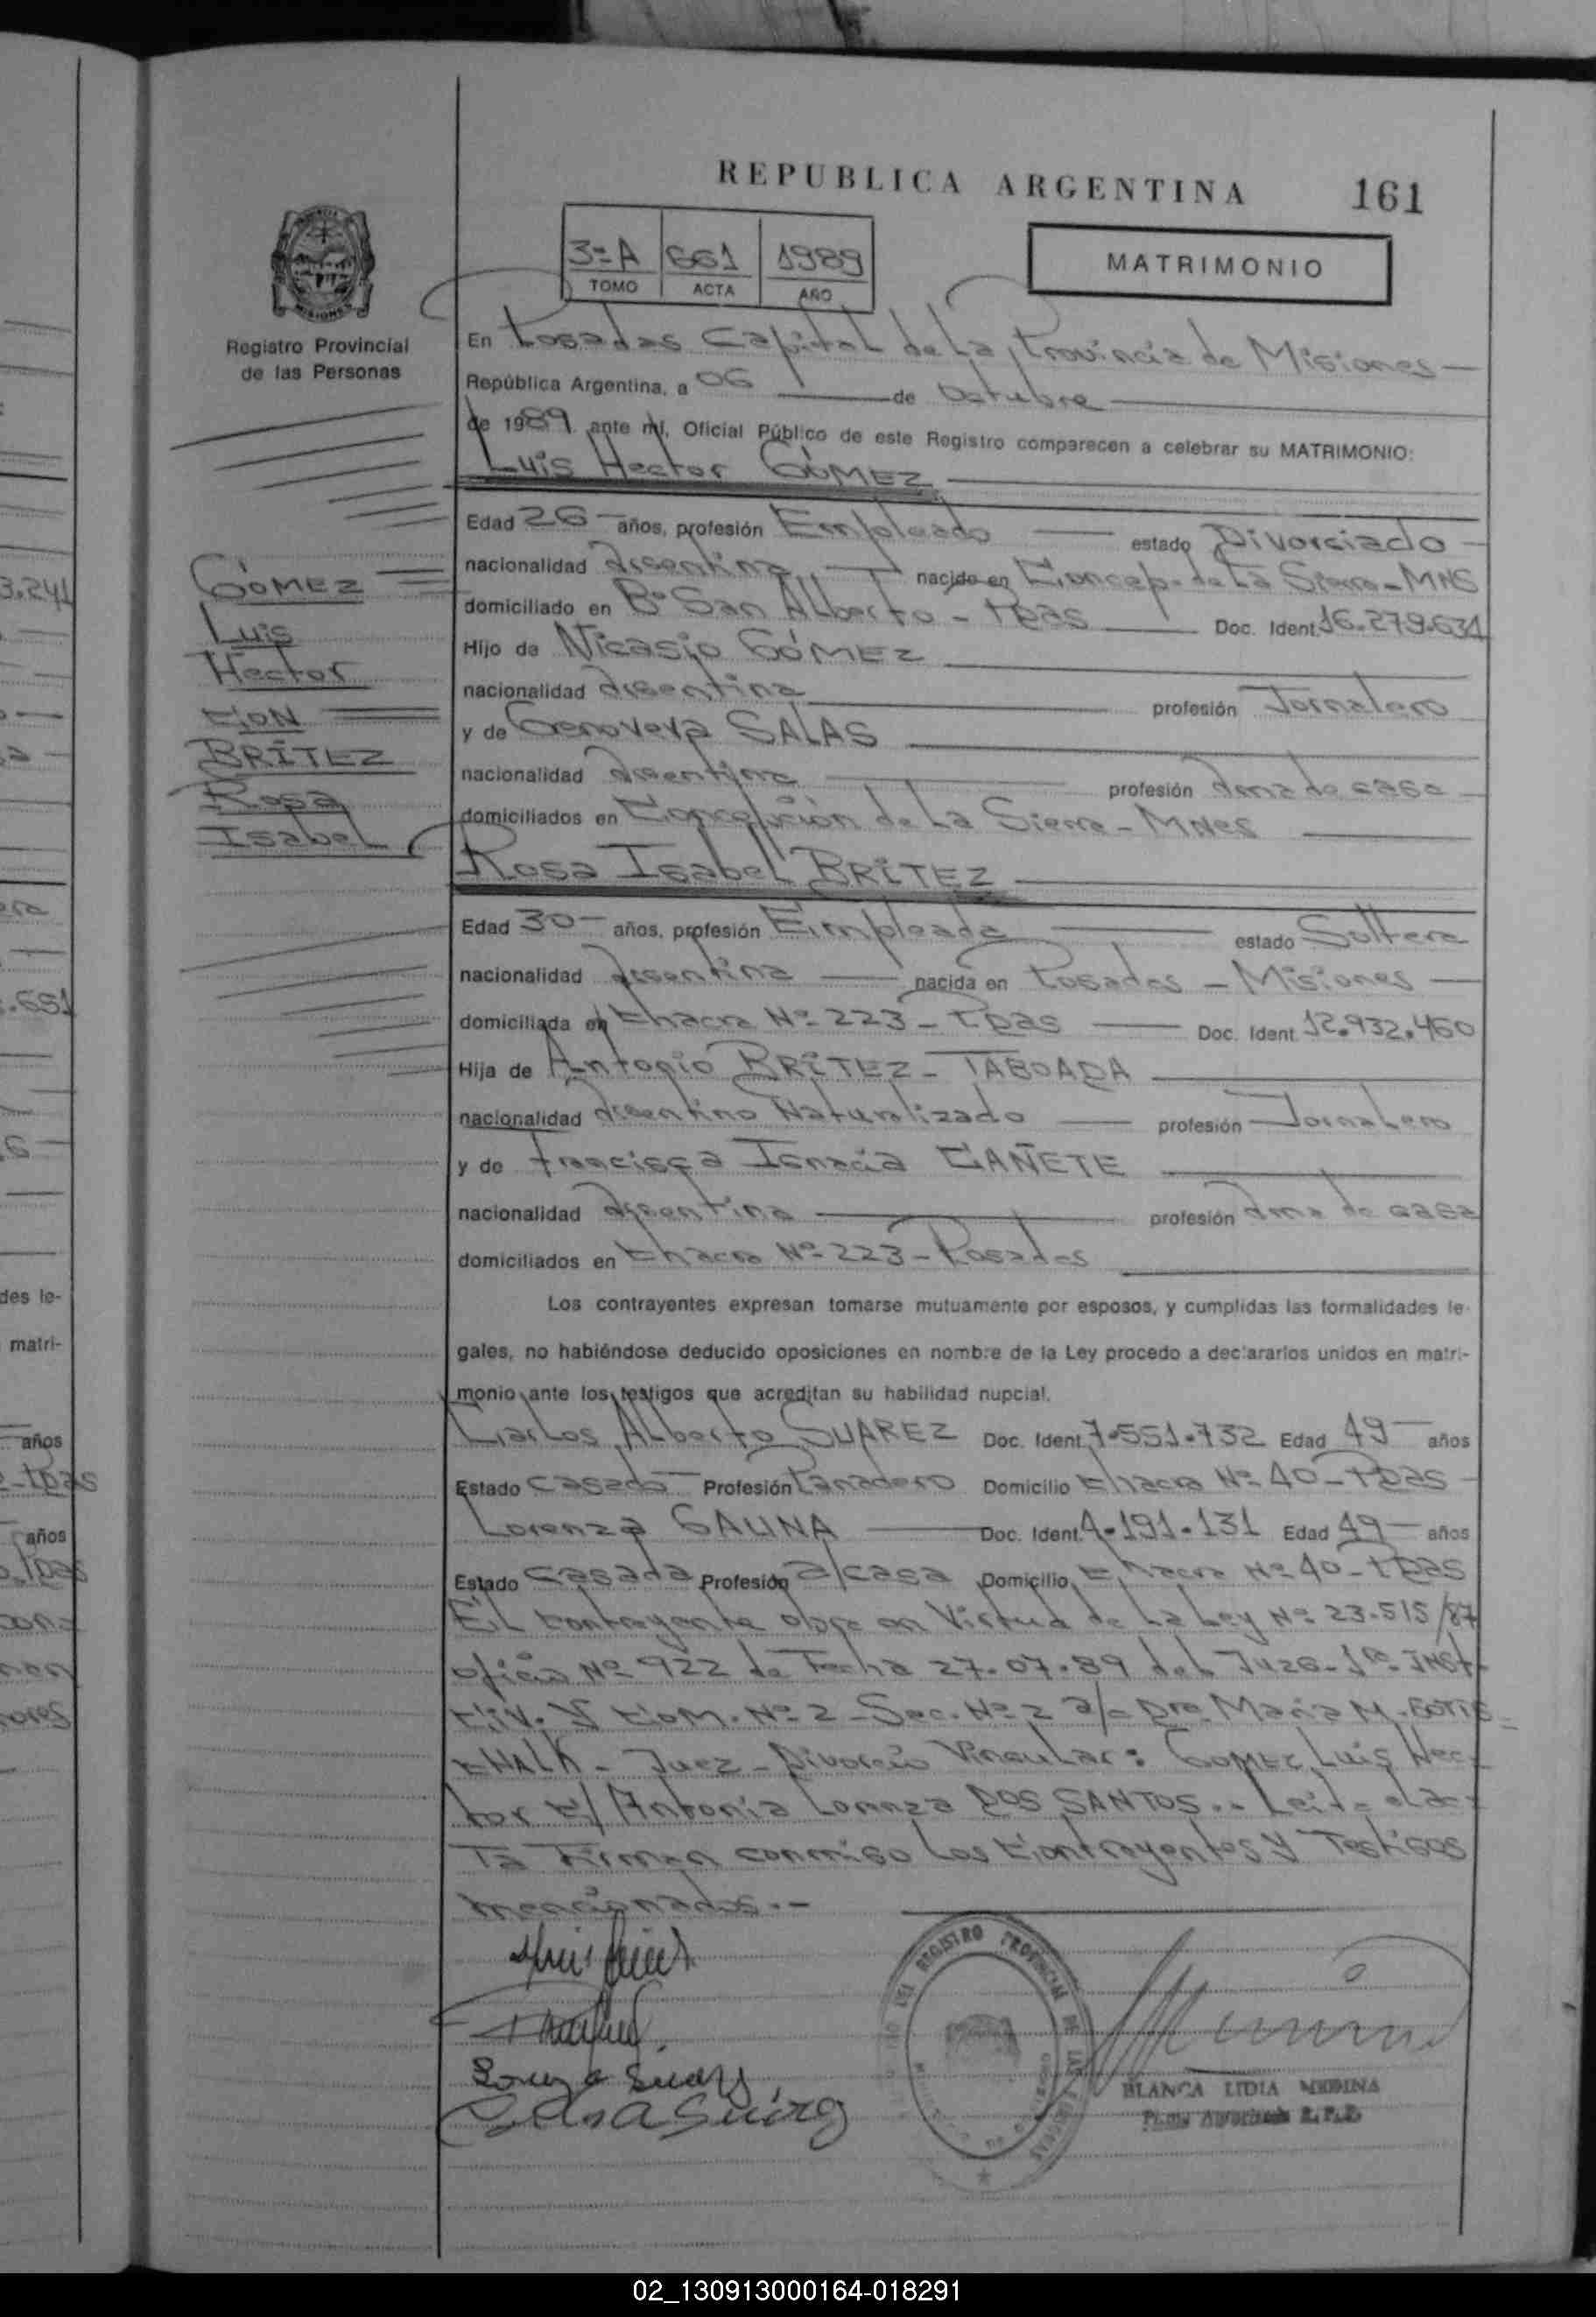 REPUBLICA ARGENTINA
161
3ºA 661 1989
TOMO ACTA AÑO
MATRIMONIO
Registro Provincial
de las Personas
En Posadas Capital de La Provincia de Misiones
República Argentina, a 06 de Octubre
de 1989 ante mí, Oficial Público de este Registro comparecen a celebrar su MATRIMONIO:
Luis Hector GÓMEZ
Edad 26 años, profesión Empleado estado Divorciado
nacionalidad Argentina nacido en Concep. de La Sierra - MNS
domiciliado en Bº San Alberto - Pdas Doc. Ident. 16.279.634
Hijo de Nicasio GÓMEZ
nacionalidad Argentina profesión Jornalero
y de Genoveva SALAS
nacionalidad Argentina profesión Ama de casa
domiciliados en Concepción de La Sierra - MNes
Rosa Isabel BRÍTEZ
Edad 30 años, profesión Empleada estado Soltera
nacionalidad Argentina nacida en Posadas - Misiones
domiciliada en Chacra Nº 223 - Pdas Doc. Ident. 12.932.460
Hija de Antonio BRÍTEZ - TABOADA
nacionalidad Argentino Naturalizado profesión Jornalero
y de Francisca Ignacia CAÑETE
nacionalidad Argentina profesión Ama de casa
domiciliados en Chacra Nº 223 - Posadas
Los contrayentes expresan tomarse mutuamente por esposos, y cumplidas las formalidades le-
gales, no habiéndose deducido oposiciones en nombre de la Ley procedo a declararlos unidos en matri-
monio ante los testigos que acreditan su habilidad nupcial.
Carlos Alberto SUAREZ Doc. Ident. 7.551.732 Edad 49 años
Estado Casado Profesión Panadero Domicilio Chacra Nº 40 - Pdas
Lorenza GAUNA Doc. Ident. 4.191.131 Edad 49 años
Estado Casada Profesión a/casa Domicilio Chacra Nº 40 - Pdas
El contrayente obra en Virtud de La Ley Nº 23.515/87
oficio Nº 922 de Fecha 27.07.89 del Juzg. 1ra. INST.
CIV. Y COM. Nº 2 - Sec. Nº 2 a/c Dra. Maria M.
Juez - Divorcio Vincular: GOMEZ, Luis Hec-
tor C/ Antonia Lorenza DOS SANTOS.- Leída el ac-
ta Firman conmigo Los Contrayentes y Testigos
mencionados.-
GÓMEZ
Luis
Hector
CON
BRÍTEZ
Rosa
Isabel
REGISTRO PROVINCIAL DE LAS PERSONAS
BLANCA LIDIA MEDINA
3.241
.651
des le-
matri-
años
años
02_130913000164-018291